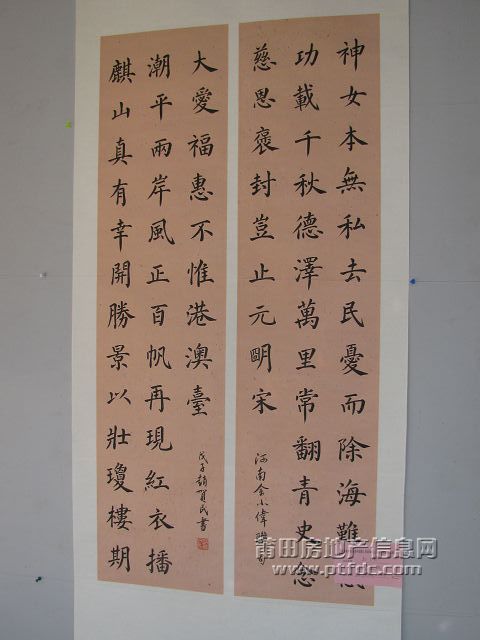 神女本無私去民憂而除海難
功載千秋德澤萬里常翻青史念
慈恩褒封豈止元朙宋
河南金小偉
麒山真有幸開勝景以壯瓊樓期
潮平兩岸風正百帆再現紅衣播
大愛福惠不惟港澳臺
戊子趙百民書
莆田房地产信息网
www.ptfdc.com